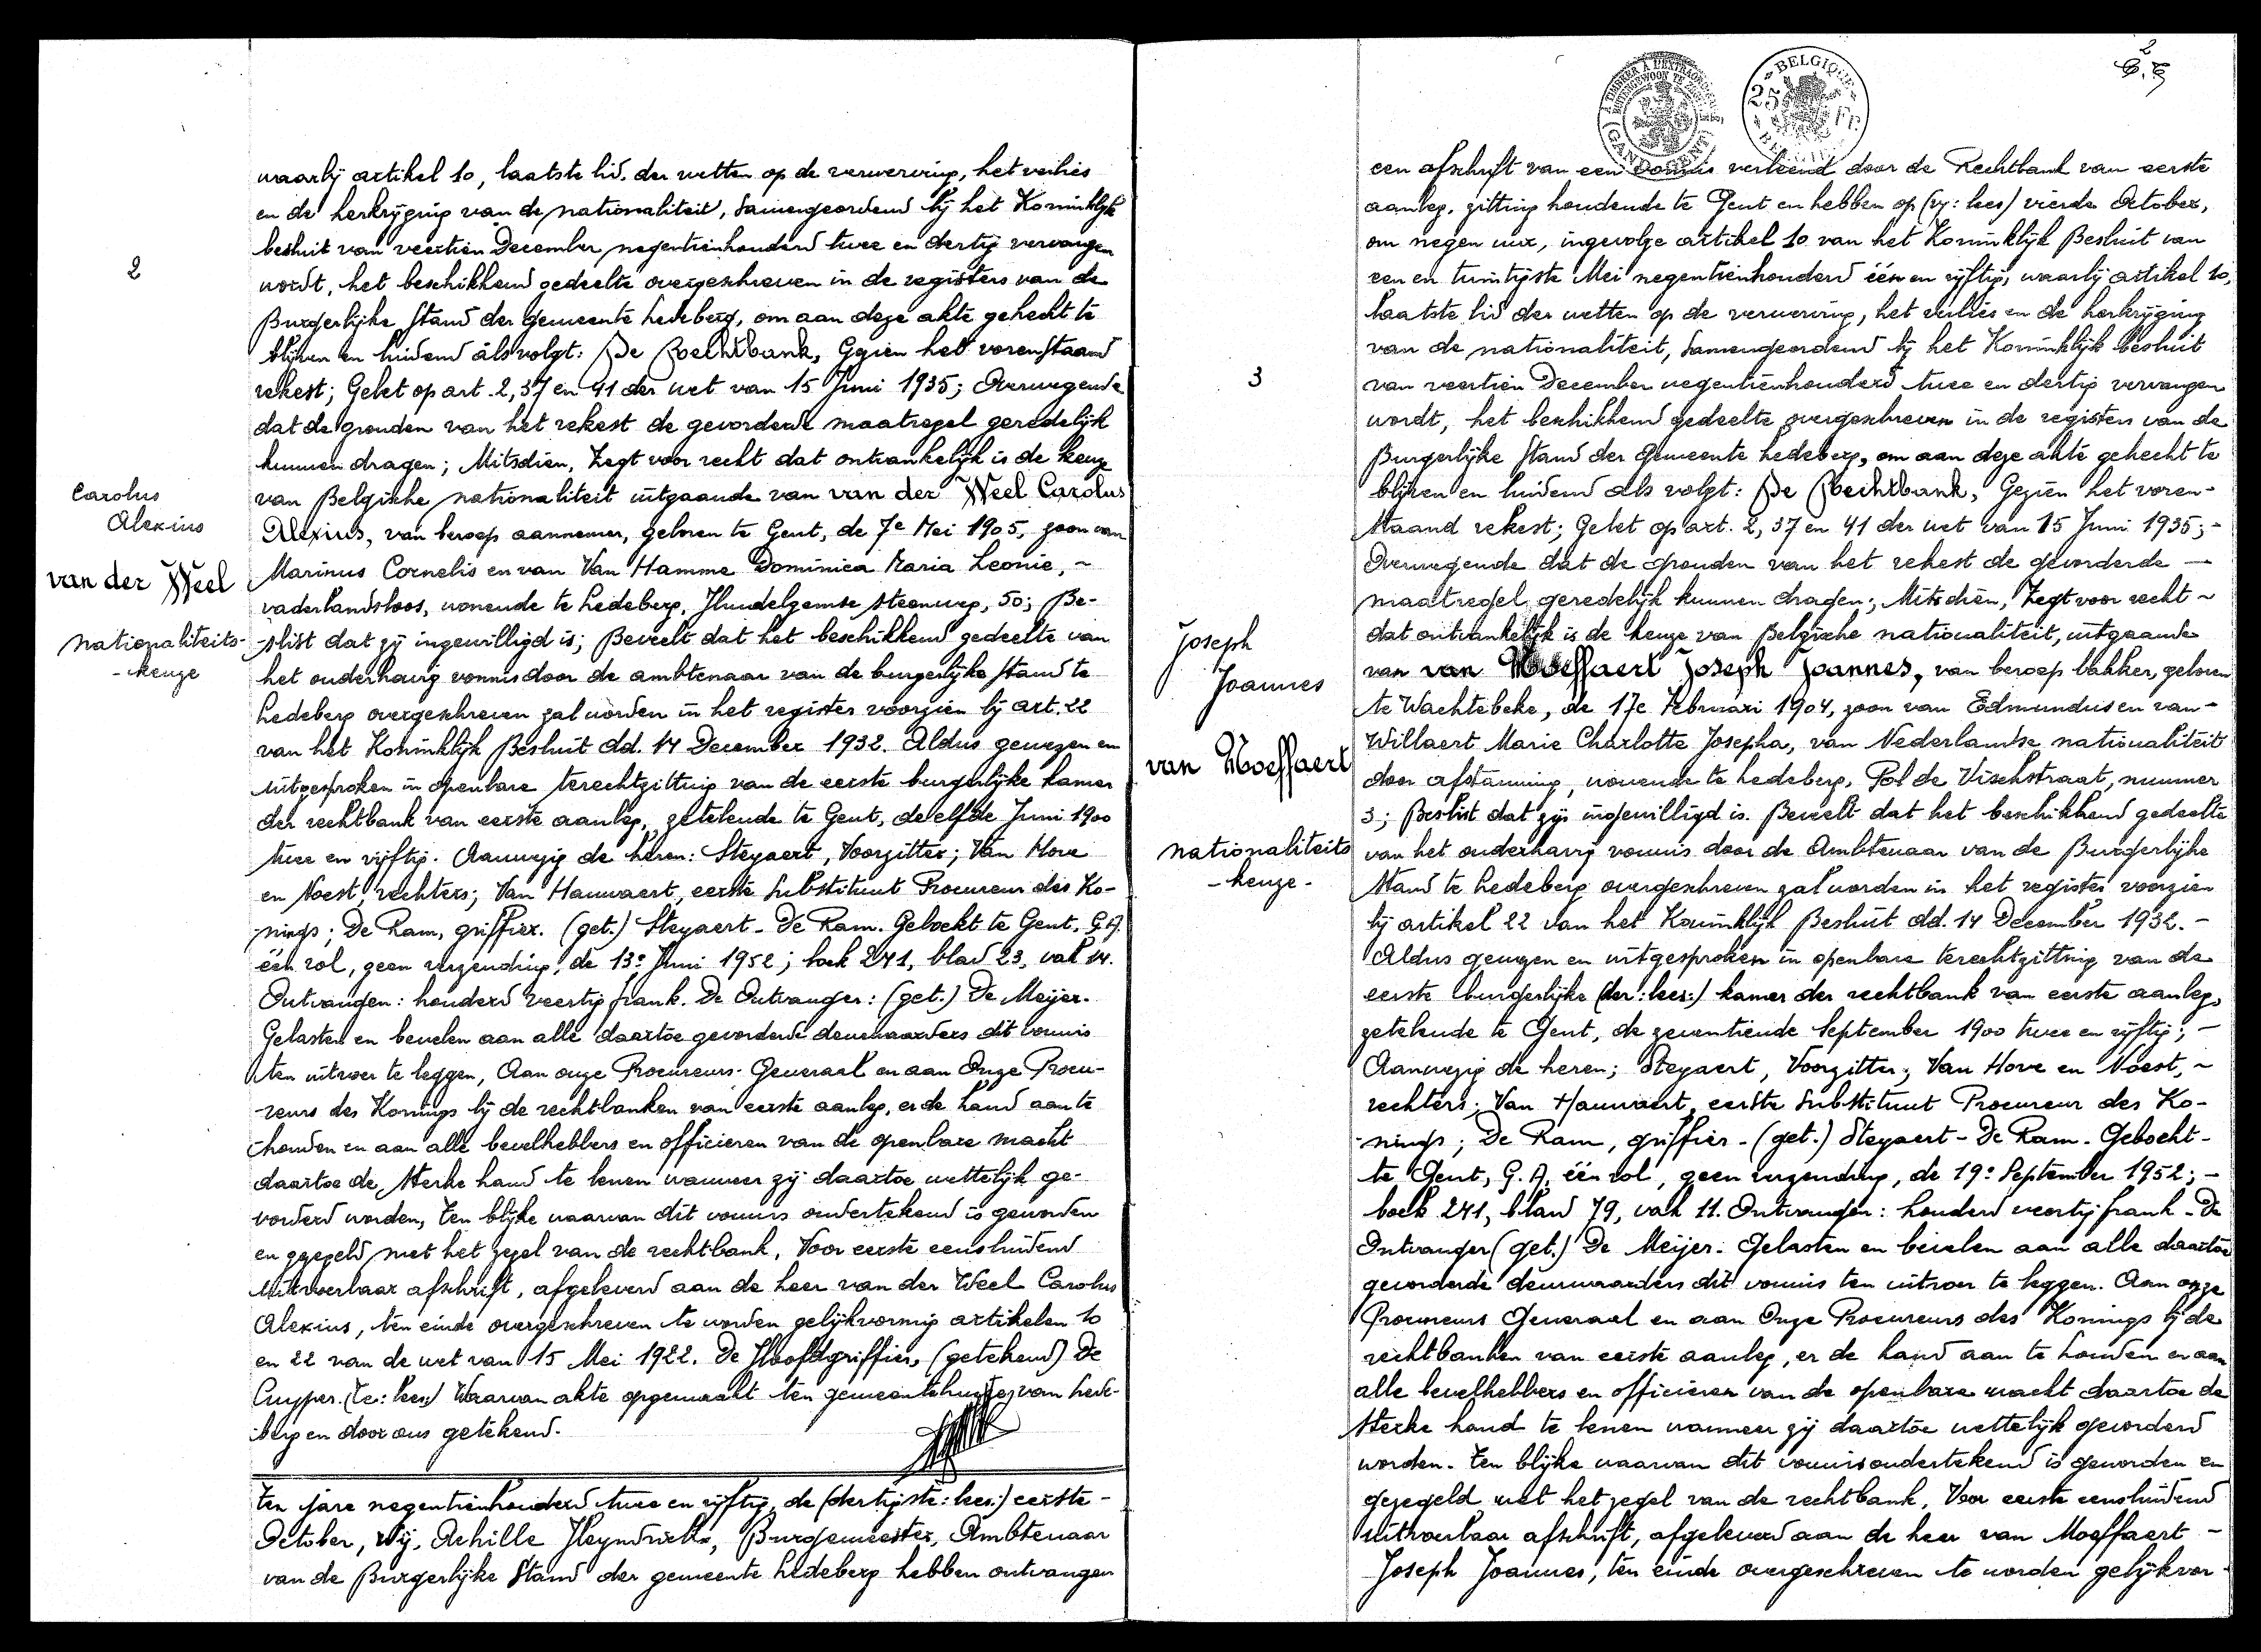 2
Carolus
Alexius
van der Weel
nationaliteits-
-keuze
waarbij artikel 10, laatste lid. der wetten op de verwerving, het verlies
en de herkrijging van de nationaliteit, samengeordend bij het Koninklijk
besluit van veertien December negentienhonderd twee en dertig vervangen
wordt, het beschikkend gedeelte overgeschreven in de registers van de
Burgerlijke Stand der gemeente Ledeberg, om aan deze akte gehecht te
blijven en luidend als volgt: De Rechtbank, Gezien het vorenstaand
rekest; Gelet op art. 2, 37 en 41 der wet van 15 Juni 1935; Overwegende
dat de gronden van het rekest de gevorderde maatregel geredelijk
kunnen dragen; Mitsdien, Zegt voor recht dat ontvankelijk is de keuze
van Belgische nationaliteit uitgaande van van der Weel Carolus
Alexius, van beroep aannemer, geboren te Gent, de 7e Mei 1905, zoon van
Marinus Cornelis en van Van Hamme Dominica Maria Leonie, ~
vaderlandsloos, wonende te Ledeberg, Hundelgemse steenweg, 50; Be-
-slist dat zij ingewilligd is; Beveelt dat het beschikkend gedeelte van
het onderhavig vonnis door de ambtenaar van de burgerlijke stand te
Ledeberg overgeschreven zal worden in het register voorzien bij art. 22
van het Koninklijk Besluit dd. 14 December 1932. Aldus gewezen en
uitgesproken in openbare terechtzitting van de eerste burgerlijke kamer
der rechtbank van eerste aanleg, zetelende te Gent, de elfde Juni 1900
twee en vijftig. Aanwezig de heren: Steyaert, Voorzitter; Van Hove
en Noest, rechters; Van Hauwaert, eerste Substituut Procureur des Ko-
nings; De Ram, griffier. (get.) Steyaert - De Ram. Geboekt te Gent, G.A.
één rol, geen verzending, de 13e Juni 1952; boek 241, blad 23, vak 14.
Ontvangen: honderd veertig frank. De Ontvanger: (get.) De Meijer.
Gelasten en bevelen aan alle daartoe gevorderde deurwaarders dit vonnis
ten uitvoer te leggen, Aan onze Procureurs-Generaal en aan Onze Procu-
-reurs des Konings bij de rechtbanken van eerste aanleg, er de hand aan te
houden en aan alle bevelhebbers en officieren van de openbare macht
daartoe de sterke hand te lenen wanneer zij daartoe wettelijk ge-
vorderd worden, Ten blijke waarvan dit vonnis ondertekend is geworden
en gezegeld met het zegel van de rechtbank, Voor eerste eensluidend
uitvoerbaar afschrift, afgeleverd aan de heer van der Weel Carolus
Alexius, ten einde overgeschreven te worden gelijkvormig artikelen 10
en 22 van de wet van 15 Mei 1922. De Hoofdgriffier, (getekend) De
Cuyper. (Te: lees:) Waarvan akte opgemaakt ten gemeentehuize van Lede-
berg en door ons getekend.
Ten jare negentienhonderd twee en vijftig, de (dertigste: lees:) eerste -
October, Wij, Achille Heyndrickx, Burgemeester, Ambtenaar
van de Burgerlijke Stand der gemeente Ledeberg hebben ontvangen
2
GAND - GENT
BELGIQUE
25 FR
BELGIE
3
Joseph
Joannes
van Moeffaert
nationaliteits
-keuze-
een afschrift van een vonnis verleend door de Rechtbank van eerste
aanleg, zitting houdende te Gent en hebben op (vij: lees) vierde October,
om negen uur, ingevolge artikel 10 van het Koninklijk Besluit van
een en twintigste Mei negentienhonderd één en vijftig, waarbij artikel 10,
laatste lid der wetten op de verwerving, het verlies en de herkrijging
van de nationaliteit, samengeordend bij het Koninklijk besluit
van veertien December negentienhonderd twee en dertig vervangen
wordt, het beschikkend gedeelte overgeschreven in de registers van de
Burgerlijke Stand der Gemeente Ledeberg, om aan deze akte gehecht te
blijven en luidend als volgt: De Rechtbank, Gezien het voren-
staand rekest; Gelet op art. 2, 37 en 41 der wet van 15 Juni 1935; -
Overwegende dat de gronden van het rekest de gevorderde -
maatregel geredelijk kunnen dragen; Mitsdien, Zegt voor recht ~
dat ontvankelijk is de keuze van Belgische nationaliteit, uitgaande
van van Moeffaert Joseph Joannes, van beroep bakker, geboren
te Wachtebeke, de 17e Februari 1904, zoon van Edmundus en van -
Willaert Marie Charlotte Josepha, van Nederlandse nationaliteit
door afstamming, wonende te Ledeberg, Pol de Vischstraat, nummer
3; Beslist dat zij ingewilligd is. Beveelt dat het beschikkend gedeelte
van het onderhavig vonnis door de Ambtenaar van de Burgerlijke
Stand te Ledeberg overgeschreven zal worden in het register voorzien
bij artikel 22 van het Koninklijk Besluit dd. 14 December 1932. -
Aldus gewezen en uitgesproken in openbare terechtzitting van de
eerste burgerlijke (der: lees:) kamer der rechtbank van eerste aanleg,
zetelende te Gent, de zeventiende September 1900 twee en vijftig; -
Aanwezig de heren; Steyaert, Voorzitter; Van Hove en Noest, ~
rechters; Van Hauwaert, eerste Substituut Procureur des Ko-
-nings; De Ram, griffier - (get.) Steyaert - De Ram. Geboekt -
te Gent, G.A, één rol, geen verzending, de 19e September 1952; -
boek 241, blad 79, vak 11. Ontvangen: honderd veertig frank - De
Ontvanger (get.) De Meijer. Gelasten en bevelen aan alle daartoe
gevorderde deurwaarders dit vonnis ten uitvoer te leggen. Aan onze
Procureurs Generaal en aan Onze Procureurs des Konings bij de
rechtbanken van eerste aanleg, er de hand aan te houden en aan
alle bevelhebbers en officieren van de openbare macht daartoe de
sterke hand te lenen wanneer zij daartoe wettelijk gevorderd
worden. Ten blijke waarvan dit vonnis ondertekend is geworden en
gezegeld met het zegel van de rechtbank, Voor eerste eensluidend
uitvoerbaar afschrift, afgeleverd aan de heer van Moeffaert -
Joseph Joannes, ten einde overgeschreven te worden gelijkvor-